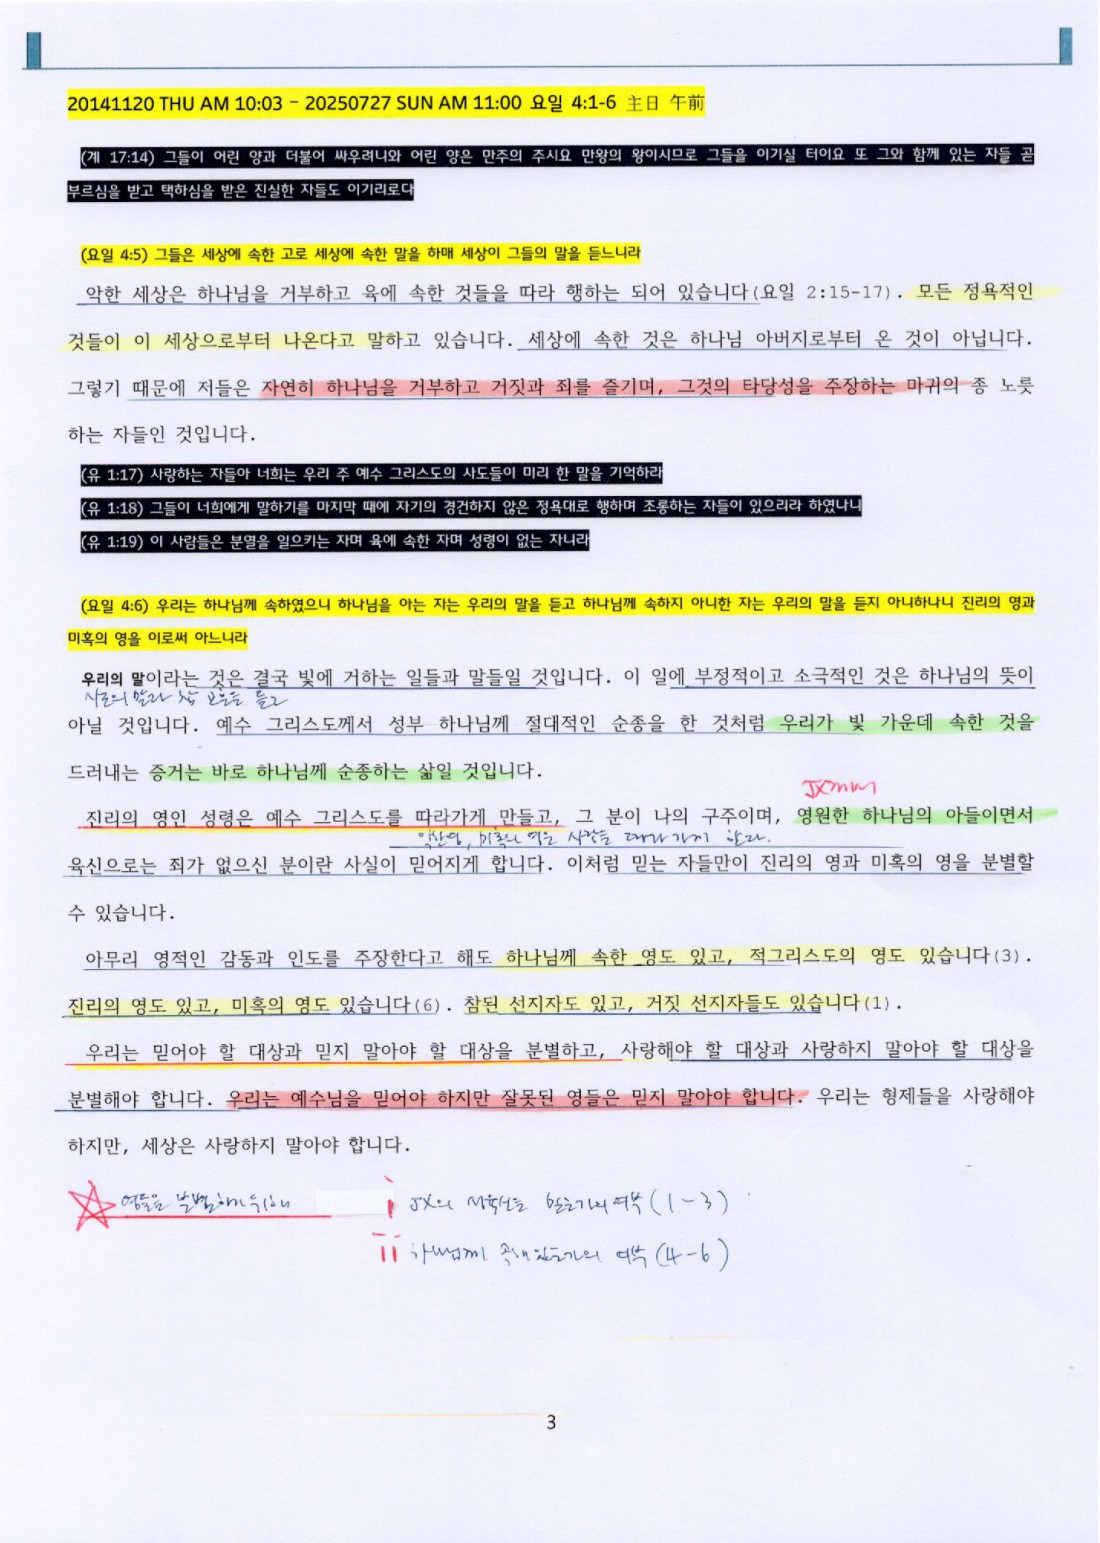 20141120 THU AM 10:03 – 20250727 SUN AM 11:00 요일 4:1-6 主日 午前
(계 17:14) 그들이 어린 양과 더불어 싸우려니와 어린 양은 만주의 주시요 만왕의 왕이시므로 그들을 이기실 터이요 또 그와 함께 있는 자들 곧
부르심을 받고 택하심을 받은 진실한 자들도 이기리로다
(요일 4:5) 그들은 세상에 속한 고로 세상에 속한 말을 하매 세상이 그들의 말을 듣느니라
악한 세상은 하나님을 거부하고 육에 속한 것들을 따라 행하는 되어 있습니다(요일 2:15-17). 모든 정욕적인
것들이 이 세상으로부터 나온다고 말하고 있습니다. 세상에 속한 것은 하나님 아버지로부터 온 것이 아닙니다.
그렇기 때문에 저들은 자연히 하나님을 거부하고 거짓과 죄를 즐기며, 그것의 타당성을 주장하는 마귀의 종 노릇
하는 자들인 것입니다.
(유 1:17) 사랑하는 자들아 너희는 우리 주 예수 그리스도의 사도들이 미리 한 말을 기억하라
(유 1:18) 그들이 너희에게 말하기를 마지막 때에 자기의 경건하지 않은 정욕대로 행하며 조롱하는 자들이 있으리라 하였나니
(유 1:19) 이 사람들은 분열을 일으키는 자며 육에 속한 자며 성령이 없는 자니라
(요일 4:6) 우리는 하나님께 속하였으니 하나님을 아는 자는 우리의 말을 듣고 하나님께 속하지 아니한 자는 우리의 말을 듣지 아니하나니 진리의 영과
미혹의 영을 이로써 아느니라
우리의 말이라는 것은 결국 빛에 거하는 일들과 말들일 것입니다. 이 일에 부정적이고 소극적인 것은 하나님의 뜻이
아닐 것입니다. 예수 그리스도께서 성부 하나님께 절대적인 순종을 한 것처럼 우리가 빛 가운데 속한 것을
드러내는 증거는 바로 하나님께 순종하는 삶일 것입니다.
진리의 영인 성령은 예수 그리스도를 따라가게 만들고, 그 분이 나의 구주이며, 영원한 하나님의 아들이면서
미혹의 영은 사람을 따라가게 한다.
육신으로는 죄가 없으신 분이란 사실이 믿어지게 합니다. 이처럼 믿는 자들만이 진리의 영과 미혹의 영을 분별할
수 있습니다.
아무리 영적인 감동과 인도를 주장한다고 해도 하나님께 속한 영도 있고, 적그리스도의 영도 있습니다(3).
진리의 영도 있고, 미혹의 영도 있습니다(6). 참된 선지자도 있고, 거짓 선지자들도 있습니다(1).
우리는 믿어야 할 대상과 믿지 말아야 할 대상을 분별하고, 사랑해야 할 대상과 사랑하지 말아야 할 대상을
분별해야 합니다. 우리는 예수님을 믿어야 하지만 잘못된 영들은 믿지 말아야 합니다. 우리는 형제들을 사랑해야
하지만, 세상은 사랑하지 말아야 합니다.
영들을 분별하기 위해 i JX의 성육신을 믿는가의 여부 (1-3)
ii 하나님께 속해 있는가의 여부 (4-6)
3